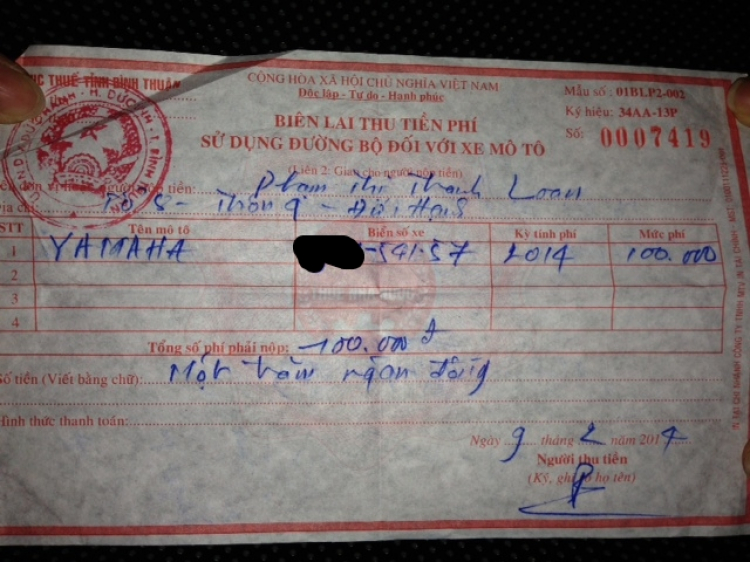 ỤC THUẾ TỈNH BÌNH THUẬN
CỘNG HÒA XÃ HỘI CHỦ NGHĨA VIỆT NAM
Độc lập - Tự do - Hạnh phúc
Mẫu số : 01BLP2-002
Ký hiệu: 34AA-13P
Số: 0007419
BIÊN LAI THU TIỀN PHÍ
SỬ DỤNG ĐƯỜNG BỘ ĐỐI VỚI XE MÔ TÔ
(Liên 2: Giao cho người nộp tiền)
người nộp tiền: Phạm Thị Thanh Loan
Địa chỉ: Tổ 8 - Thôn 9 -
STT Tên mô tô Biển số xe Kỳ tính phí Mức phí
1 YAMAHA -541-57 2014 100.000
2
3
4
Tổng số phí phải nộp: 100.000 đ
Số tiền (Viết bằng chữ): Một trăm ngàn đồng
Hình thức thanh toán:
Ngày 9 tháng 2 năm 2014
Người thu tiền
(Ký, ghi rõ họ tên)